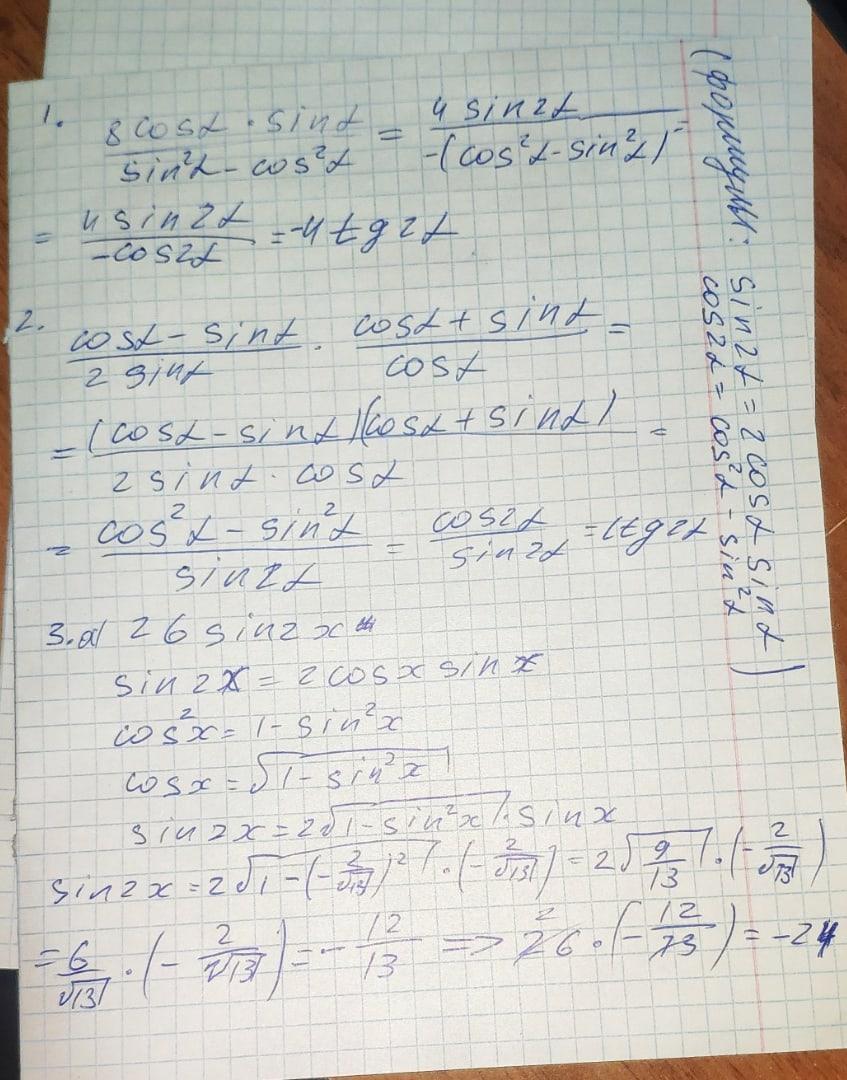 1. (8cosα · sinα)/(sin²α - cos²α) = (4 sin2α)/(-(cos²α - sin²α)) =
= (4 sin2α)/(-cos2α) = -4 tg2α
2. (cosα - sinα)/(2 sinα) · (cosα + sinα)/(cosα) =
= ((cosα - sinα)(cosα + sinα))/(2 sinα · cosα) =
= (cos²α - sin²α)/(sin2α) = (cos2α)/(sin2α) = ctg2α
3. а) 26 sin2x
sin2x = 2cosx sinx
cos²x = 1 - sin²x
cosx = √(1 - sin²x)
sin2x = 2√(1 - sin²x) · sinx
sin2x = 2√(1 - (-2/√13)²) · (-2/√13) = 2√(9/13) · (-2/√13)
= 6/√13 · (-2/√13) = -12/13 => 26 · (-12/13) = -24
(формулы: sin2α = 2cosα sinα
cos2α = cos²α - sin²α)